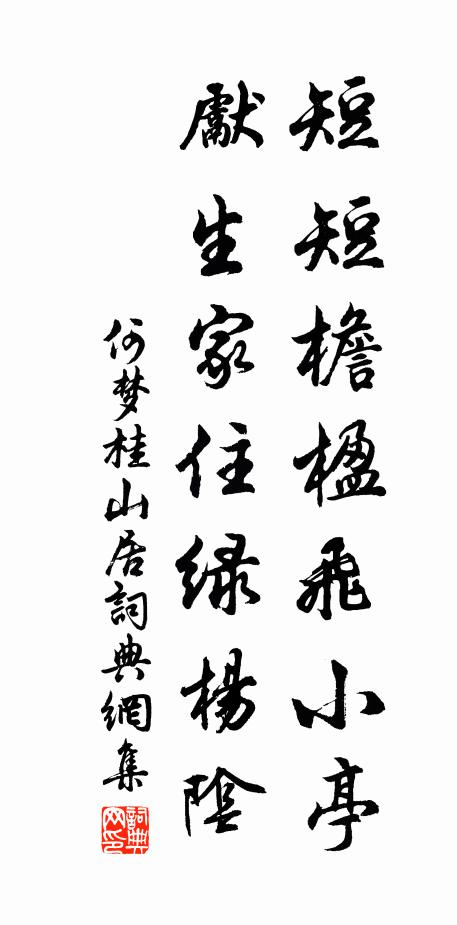 短短檐楹飛小亭
獻生家住绿楊陰
何梦桂山居詞典網集
詞典网印